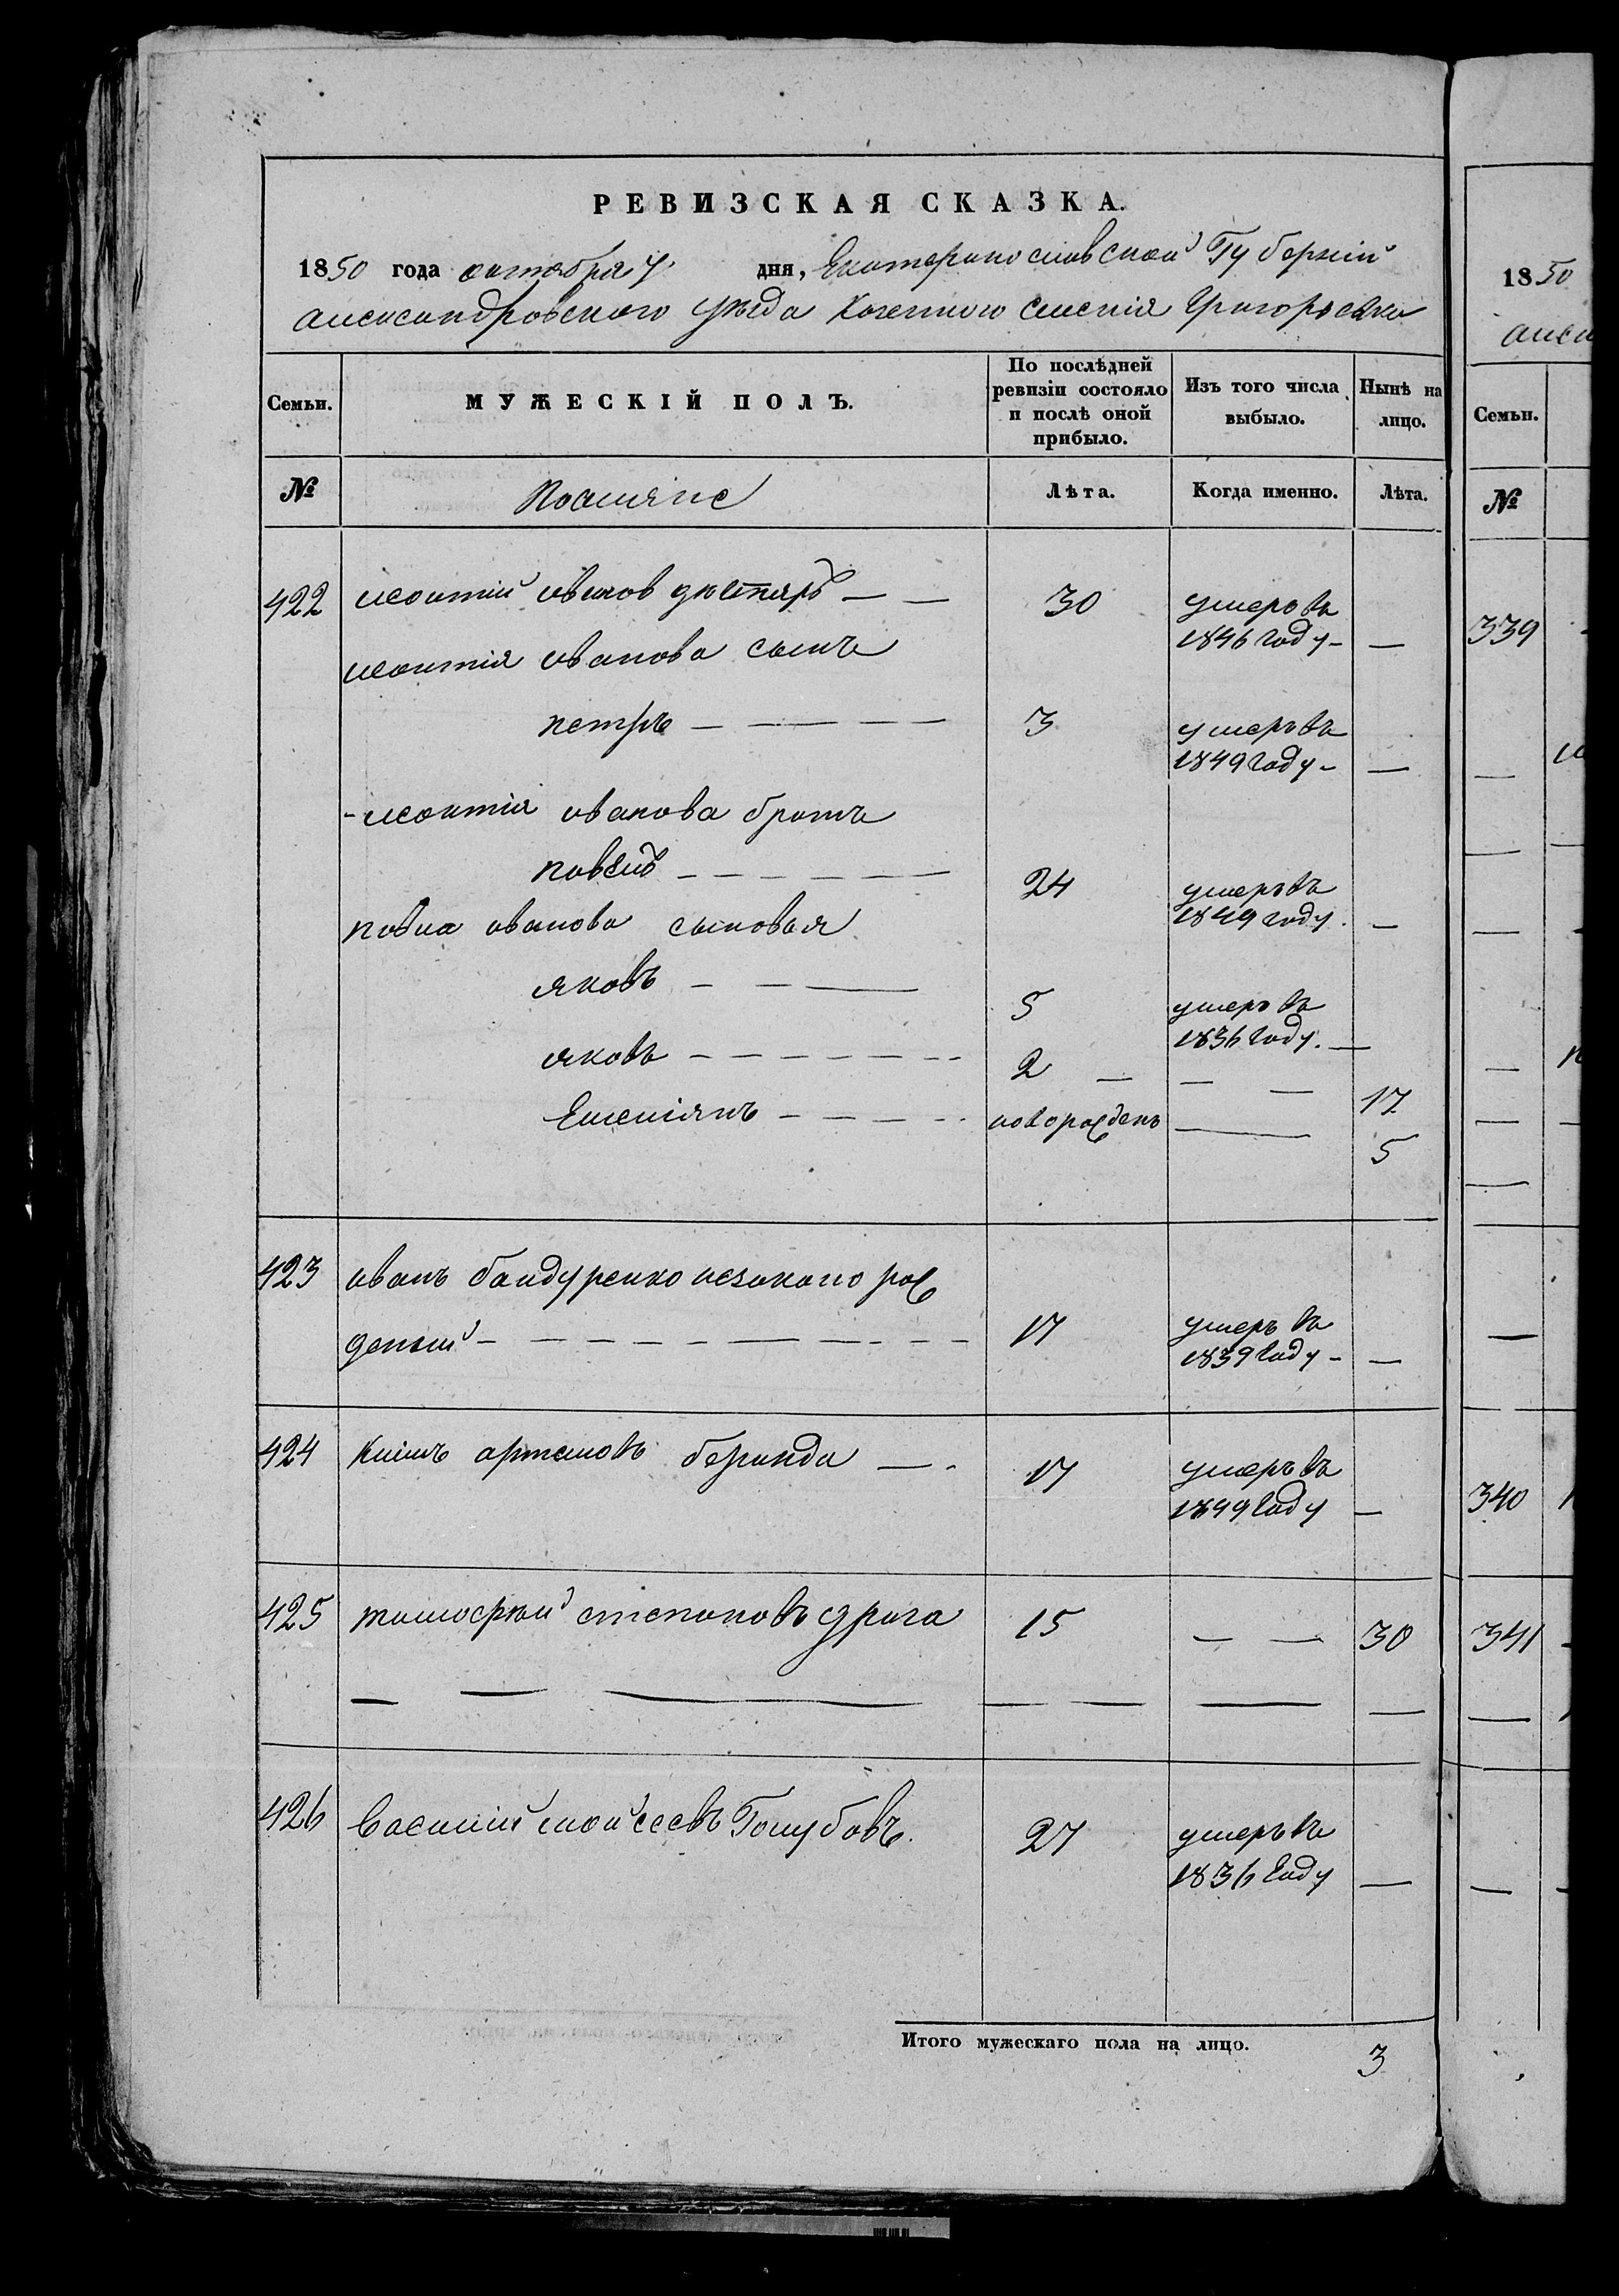 РЕВИЗСКАЯ СКАЗКА.
1850 года октября 7 дня, Екатеринославской Губерніи
александровского уезда Казенного селенія Григорьевки
Семьи.
МУЖЕСКІЙ ПОЛЪ.
По послѣдней ревизіи состояло и послѣ оной прибыло.
Изъ того числа выбыло.
Нынѣ на лицо.
№
Поселяне
Лѣта.
Когда именно.
Лѣта.
422 леонтий иванов 30 умеръ въ
1846 году
леонтія иванова сынъ
петръ 3 умеръ въ
1849 году
леонтія иванова братъ
павелъ 24 умеръ въ
1849 году
павла иванова сыновья
яковъ 5 умеръ въ
1836 году
яковъ 2 17
Емеліянъ новорожденъ 5
423 иванъ бандуренко незаконо рож
деный 17 умеръ въ
1839 году
424 климъ артемовъ 17 умеръ въ
году
425 тимофей степановъ 15 30
426 василий мойсеевъ Голубовъ. 27 умеръ въ
1836 году
Итого мужескаго пола на лицо. 3
1850
Семьи.
№
339
340
341